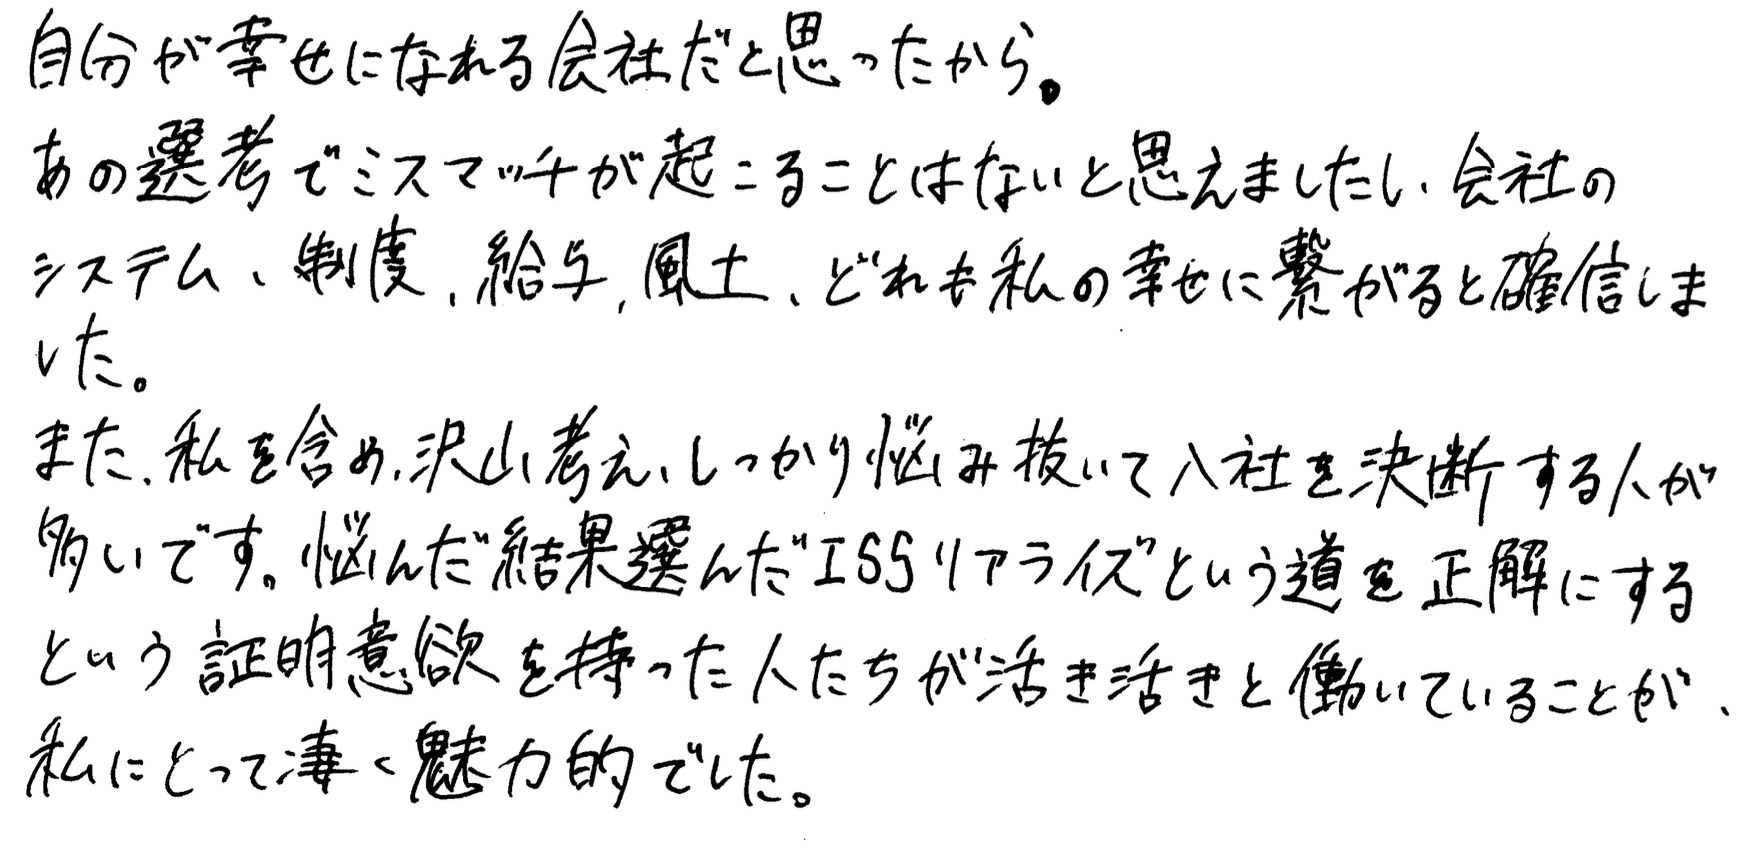 自分が幸せになれる会社だと思ったから。
あの選考でミスマッチが起こることはないと思えましたし、会社の
システム、制度、給与、風土、どれも私の幸せに繋がると確信しま
した。
また、私を含め、沢山考え、しっかり悩み抜いて入社を決断する人が
多いです。悩んだ結果選んだISSリアライズという道を正解にする
という証明意欲を持った人たちが活き活きと働いていることが、
私にとって凄く魅力的でした。